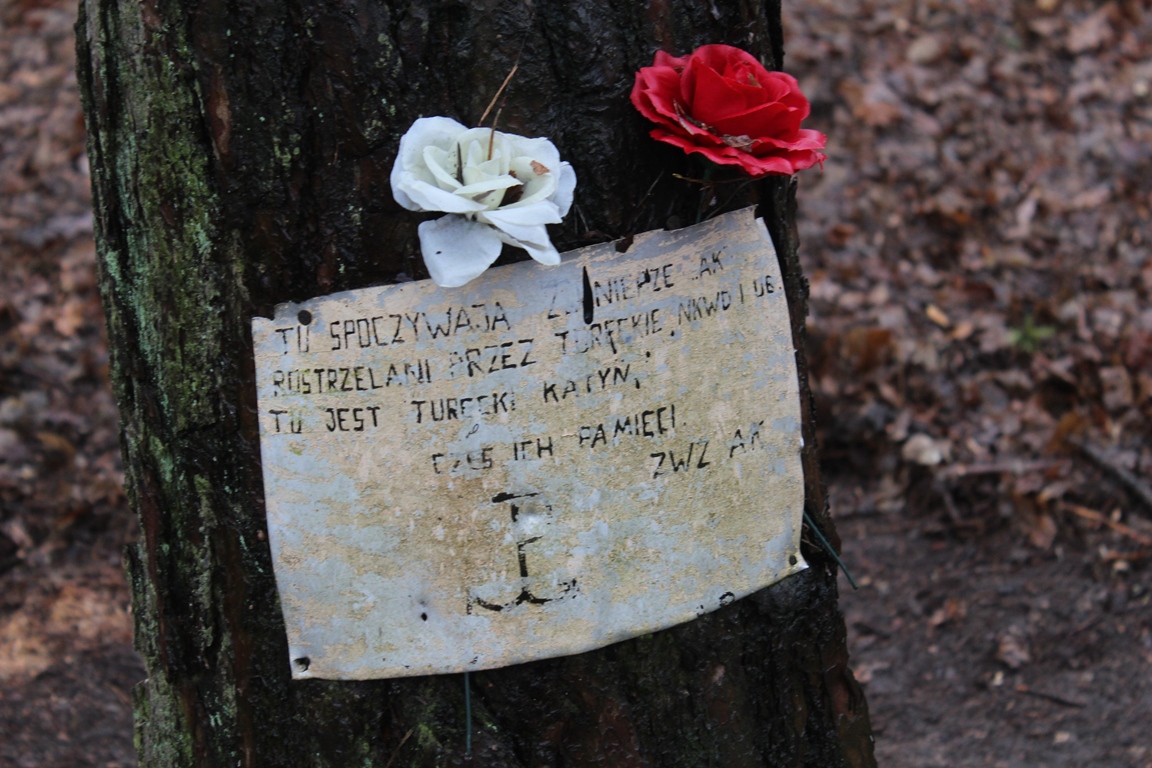 TU SPOCZYWAJĄ ŻOŁNIERZE „AK"
ROSTRZELANI PRZEZ TURECKIE „NKWD I UB.
TU JEST TURECKI KATYŃ,
CZEŚĆ ICH PAMIĘCI.
ZWZ AK